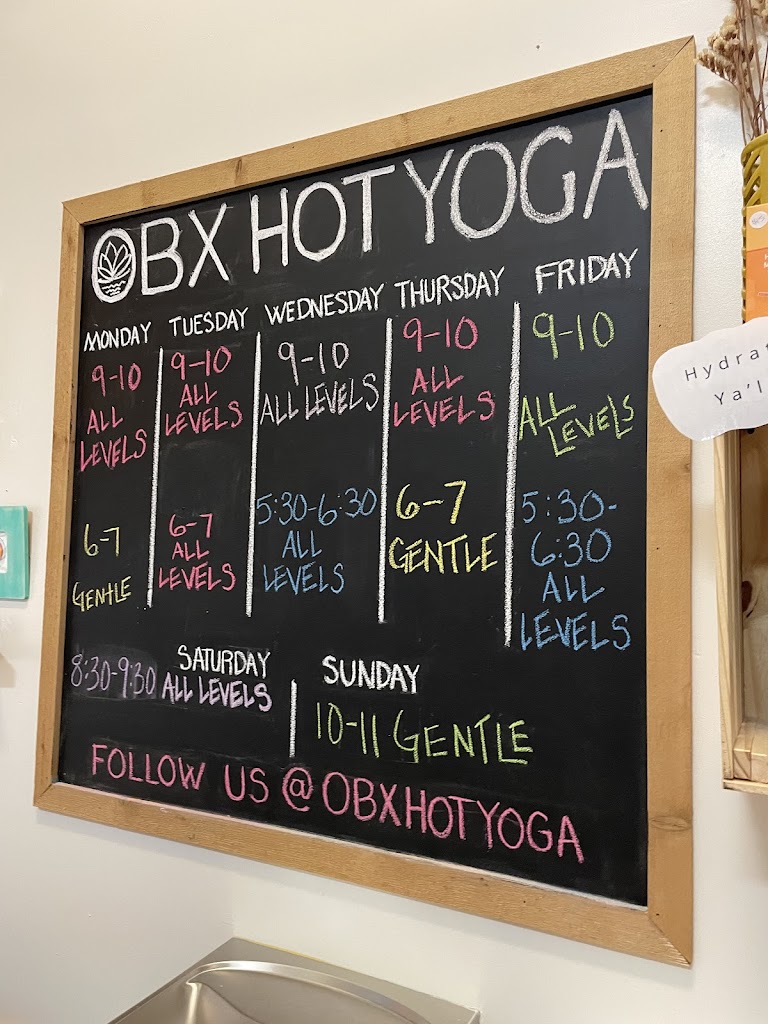 OBX HOT YOGA
MONDAY
9-10
ALL
LEVELS
6-7
GENTLE
TUESDAY
9-10
ALL
LEVELS
6-7
ALL
LEVELS
WEDNESDAY
9-10
ALL LEVELS
5:30-6:30
ALL
LEVELS
THURSDAY
9-10
ALL
LEVELS
6-7
GENTLE
FRIDAY
9-10
ALL
LEVELS
5:30-
6:30
ALL
LEVELS
SATURDAY
8:30-9:30 ALL LEVELS
SUNDAY
10-11 GENTLE
FOLLOW US @OBXHOTYOGA
Hydrat
Ya'l